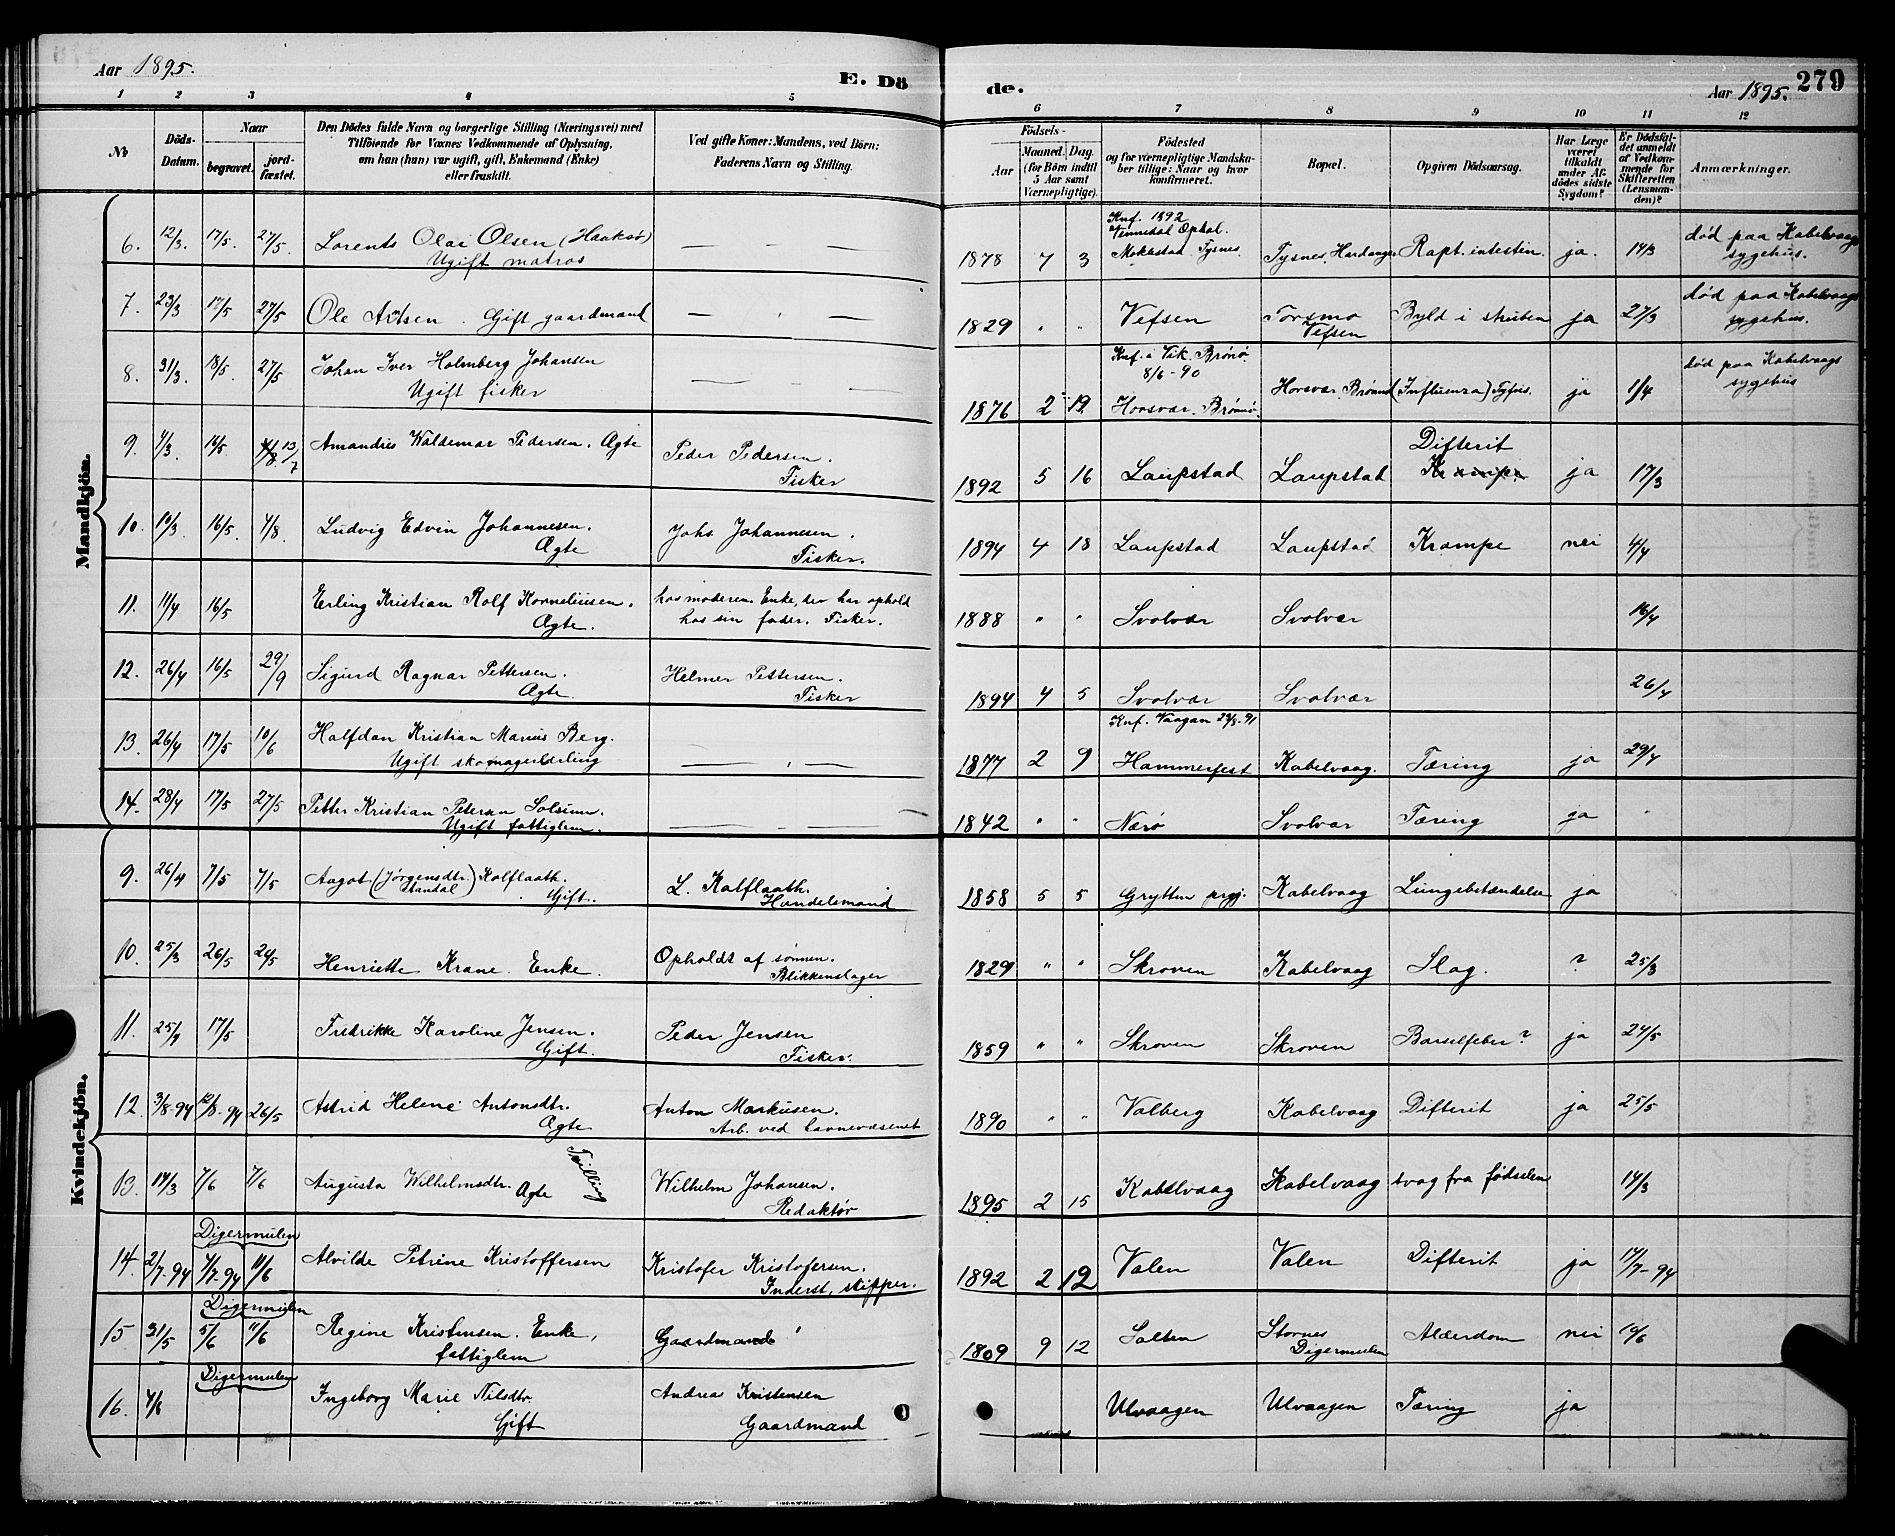 Aar 1895.
E. Dö
de.
Aar 1895.
279
1 2 3 4 5 6 7 8 9 10 11 12
№
Döds-Datum.
Naar
begravet.
jord-fæstet.
Den Dödes fulde Navn og borgerlige Stilling (Næringsvei) med
Tilföiende for Voxnes Vedkommende af Oplysning,
om han (hun) var ugift, gift, Enkemand (Enke)
eller fraskilt.
Ved gifte Koner: Mandens, ved Börn:
Faderens Navn og Stilling.
Födsels-
Aar
Maaned. Dag
(for Börn indtil
5 Aar samt
Værnepligtige).
Födested
og for værnepligtige Mandska-
ber tillige: Naar og hvor
konfirmeret.
Bopæl.
Opgiven Dödsaarsag.
Har Læge
været
tilkaldt
under Af-
dödes sidste
Sygdom?
Er Dödsfal-
det anmeldt
af Vedkom-
mende for
Skifteretten
(Lensman-
den)?
Anmærkninger.
Mandkjön.
6. 12/3. 17/5. 27/5. Lorents Olai Olsen (Haaksø) Ugift matros — — 1878 7 3 Knf. 1892 Tysnes. Tysnes. Hardanger Rupt. intestin. ja. 14/3 død paa Kabelvaags sygehus.
7. 23/3 17/5 27/5 Ole Artsen. Gift gaardmand — — 1829 " " Vefsen Forsmo Vefsen Byld i struben ja 27/3 død paa Kabelvaags sygehus.
8. 31/3. 18/5. 27/5 Johan Iver Holmberg Johansen Ugift fisker — — 1876 2 19 Knf. i Vik. Brønø. 8/6-90 Horsvær. Brønnø. Horsvær. Brønnø (Influenza) Tyfus. ja 1/4 død paa Kabelvaags sygehus
9. 4/3. 16/5. 13/7 Amandus Waldemar Pedersen. Ægte Peder Pedersen. Fisker 1892 5 16 Laupstad Laupstad Difterit Krampe ja 17/3
10. 10/3. 16/5. 4/8. Ludvig Edvin Johannesen. Ægte Johs Johannesen. Fisker. 1894 4 18 Laupstad Laupstad Krampe nei 4/4
11. 11/4 16/5 Erling Kristian Rolf Korneliusen. Ægte. hos moderen Enke, der har ophold hos sin fader. Fisker. 1888 " " Svolvær Svolvær 16/4
12. 26/4 16/5 29/9 Sigurd Ragnar Pettersen. Ægte. Helmer Pettersen. Fisker 1894 4 5 Svolvær Svolvær 26/4
13. 26/4 17/5 10/6 Halfdan Kristian Marius Berg. Ugift skomagerlærling — — 1877 2 9 Knf. Vaagan 91 Hammerfest Kabelvaag. Tæring ja 29/4
14. 28/4 17/5 27/5 Petter Kristian Petersen Solsum. Ugift fattiglem. — — 1842 " " Nærø Svolvær Tæring ja "
Kvindekjön.
9. 26/4 7/5 7/5 Aagot (Jørgensdtr. Standal) Kolflaath. Gift. L. Kolflaath. Handelsmand 1858 5 5 Grytten prgj. Kabelvaag Lungebetændelse ja
10. 25/3 26/5 24/5 Henriette Krane. Enke. Opholdt af sønnen. Blikkenslager 1829 " " Skroven Kabelvaag Slag. ? 25/3
11. 25/4 17/5 Fredrikke Karoline Jensen. Gift. Peder Jensen Fisker. 1859 " " Skroven Skroven Barselfeber? ja 24/5
12. 3/8-94 12/8-94 26/5 Astrid Helene Antonsdtr. Ægte Anton Markusen. Arb. ved havnevæsenet 1890 " " Valberg Kabelvaag Difterit ja 25/5
13. 14/3 7/6 7/6 Augusta Wilhelmsdtr. Ægte Tvilling Wilhelm Johansen. Redaktør 1895 2 15 Kabelvaag Kabelvaag svag fra fødselen 14/3
14. 2/7-94 Digermulen 4/7-94 11/6 Alvilde Petrine Kristoffersen Kristofer Kristofersen. Inderst, skipper. 1892 2 12 Valen Valen Difterit ja 17/7-94
15 31/5 Digermulen 5/6 11/6 Regine Kristensen. Enke, fattiglem Gaardmand 1809 9 12 Salten Stornes Digermulen Alderdom nei 10/6
16. 4/6 Digermulen Ingeborg Marie Nilsdtr. Gift Andreas Kristensen Gaardmand Ulvaagen Ulvaagen Tæring ja